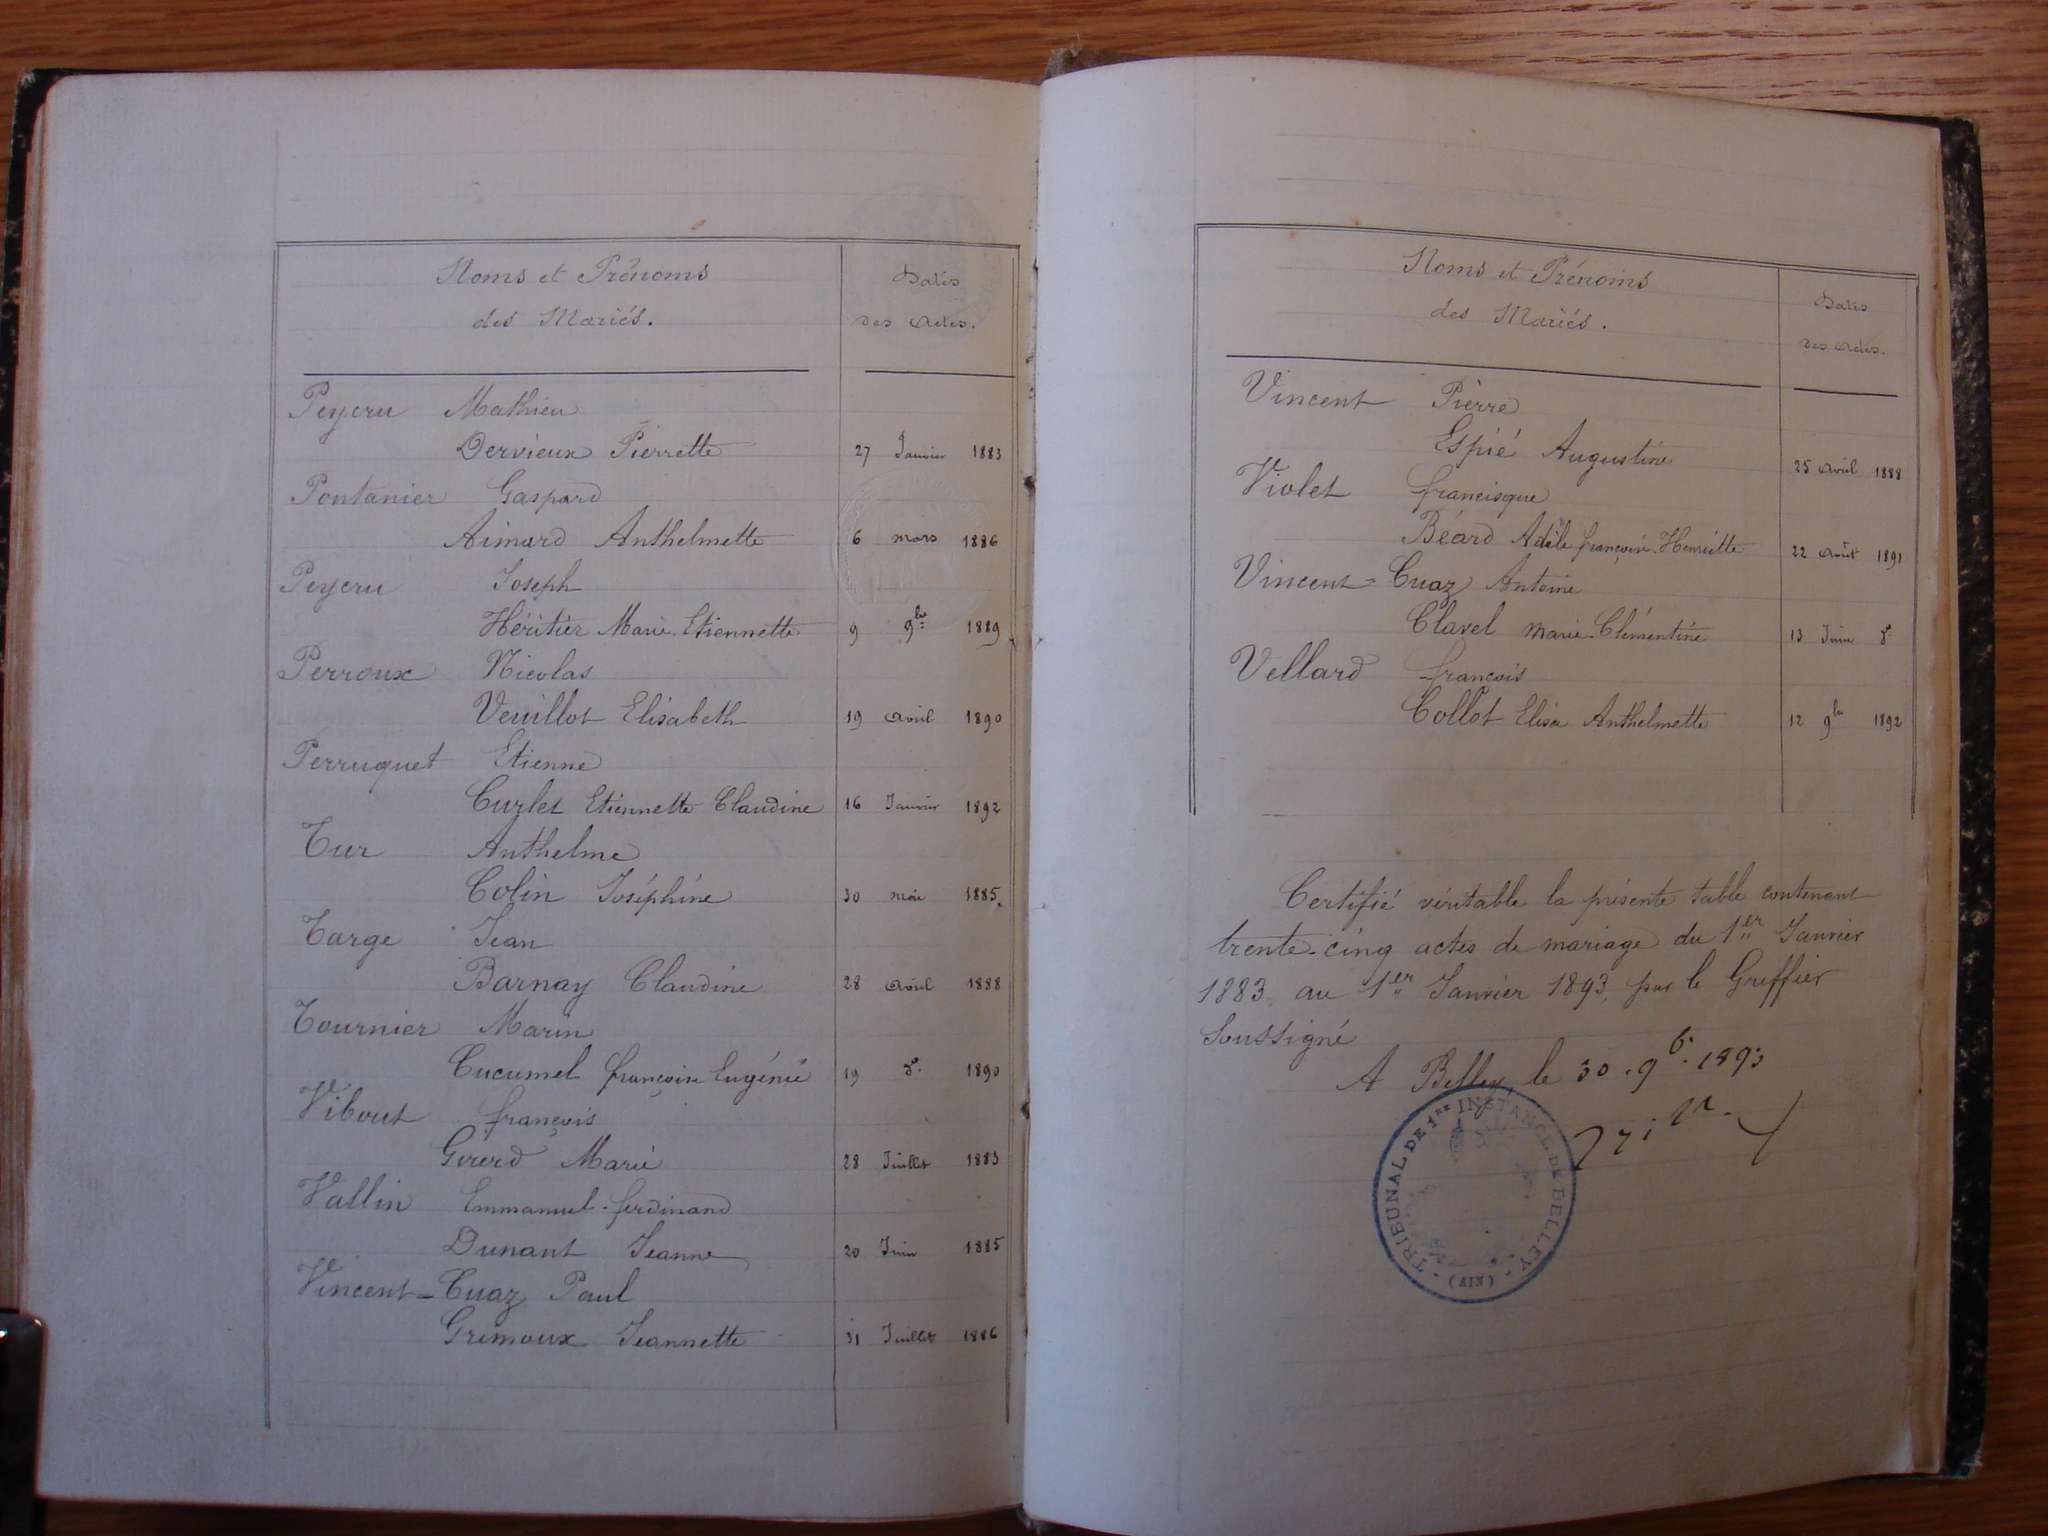 Noms et Prénoms
des Mariés.
Dates
des Actes.
Peyeru Mathieu
Dervieux Pierrette 27 Janvier 1883
Pontanier Gaspard
Aimard Anthelmette 6 mars 1886
Peyeru Joseph
Héritier Marie Etiennette 9 9bre 1889
Perroux Nicolas
Veuillot Elisabeth 19 avril 1890
Perruquet Etienne
Curlet Etiennette Claudine 16 Janvier 1892
Tur Anthelme
Colin Joséphine 30 mai 1885.
Targe Jean
Barnay Claudine 28 avril 1888
Tournier Marin
Cucumel françoise Eugénie 19 do 1890
Vibout françois
Girerd Marie 28 Juillet 1883
Vallin Emmanuel-ferdinand
Dunant Jeanne 20 Juin 1885
Vincent-Cuaz Paul
Grimoux Jeannette 31 Juillet 1886
Noms et Prénoms
des Mariés.
Dates
des Actes.
Vincent Pierre
Espié Augustine 25 avril 1888
Violet francisque
Béard Adèle françoise Henriette 22 août 1891
Vincent-Cuaz Antoine
Clavel marie-Clémentine 13 Juin do
Vellard françois
Collot Elisa Anthelmette 12 9bre 1892
Certifié véritable la présente table contenant
trente-cinq actes de mariage du 1er Janvier
1883, au 1er Janvier 1893, par le Greffier
Soussigné
A Belley, le 30. 9b. 1893
TRIBUNAL DE 1RE INSTANCE DE BELLEY
(AIN)